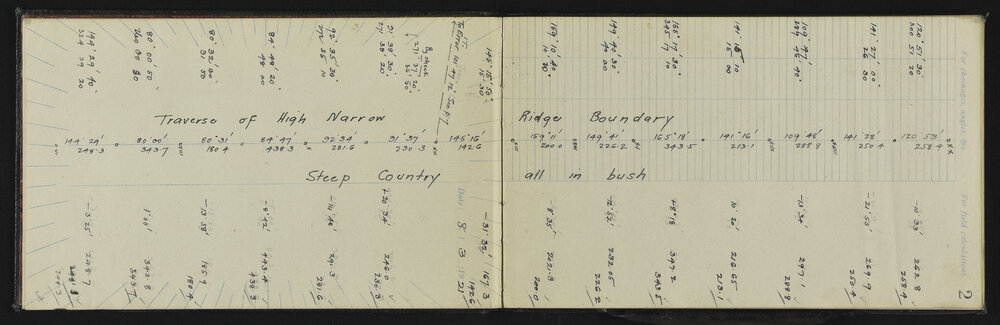 Traverse of High Narrow Ridge Boundary
144°29' 80°00' 80°31' 84°47' 92°34' 91°37' 145°15' 159°11' 149°41' 165°18' 141°16' 109°48' 141°28' 120°53'
248.3 343.7 180.4 438.3 281.6 230.3 142.6 200.0 226.2 343.5 213.1 288.8 250.4 258.4
Steep Country all in bush
144° 29' 40"
324 29 20
80° 00' 50"
260 00 50
80° 32' 00"
31 50
84° 48' 20"
48 00
92° 35' 30"
35 10
91° 38' 30"
38 20
145° 15' 50"
15 30
159° 10' 40"
10 20
149° 40' 30"
40 00
165° 17' 30"
345 17 10
141° 15' 10"
15 00
109° 47' 00"
289 46 40
141° 27' 00"
26 30
120° 51' 30"
300 51 20
For chainages, angles, &c.
For field calculations
2
Date 8 / 3 / 1921
-3°25' 248.7
248.3
1°00' 343.8
343.7
-13°58' 185.9
180.4
-8°42' 443.4
438.3
-14°44' 291.3
281.6
+20°34' 246.0
230.3
-31°32' 167.3
142.6
-8°35' 202.3
200.0
-12°52' 232.05
226.2
+8°18' 347.2
343.5
10°26' 216.65
213.1
-13°34' 297.1
288.8
-21°55' 269.9
250.4
-10°38' 262.8
258.4